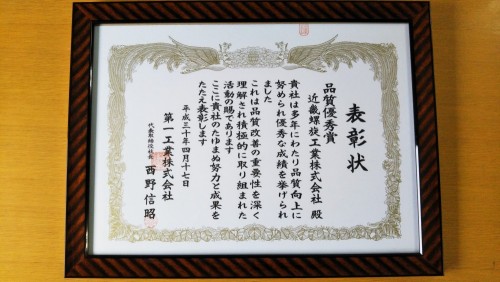 表彰状
品質優秀賞
近畿螺旋工業株式会社 殿
貴社は多年にわたり品質向上に
努められ優秀な成績を挙げられ
ました
これは品質改善の重要性を深く
理解され積極的に取り組まれた
活動の賜であります
ここに貴社のたゆまぬ努力と成果を
たたえ表彰します
平成三十年四月十七日
第一工業株式会社
代表取締役社長 西野信昭